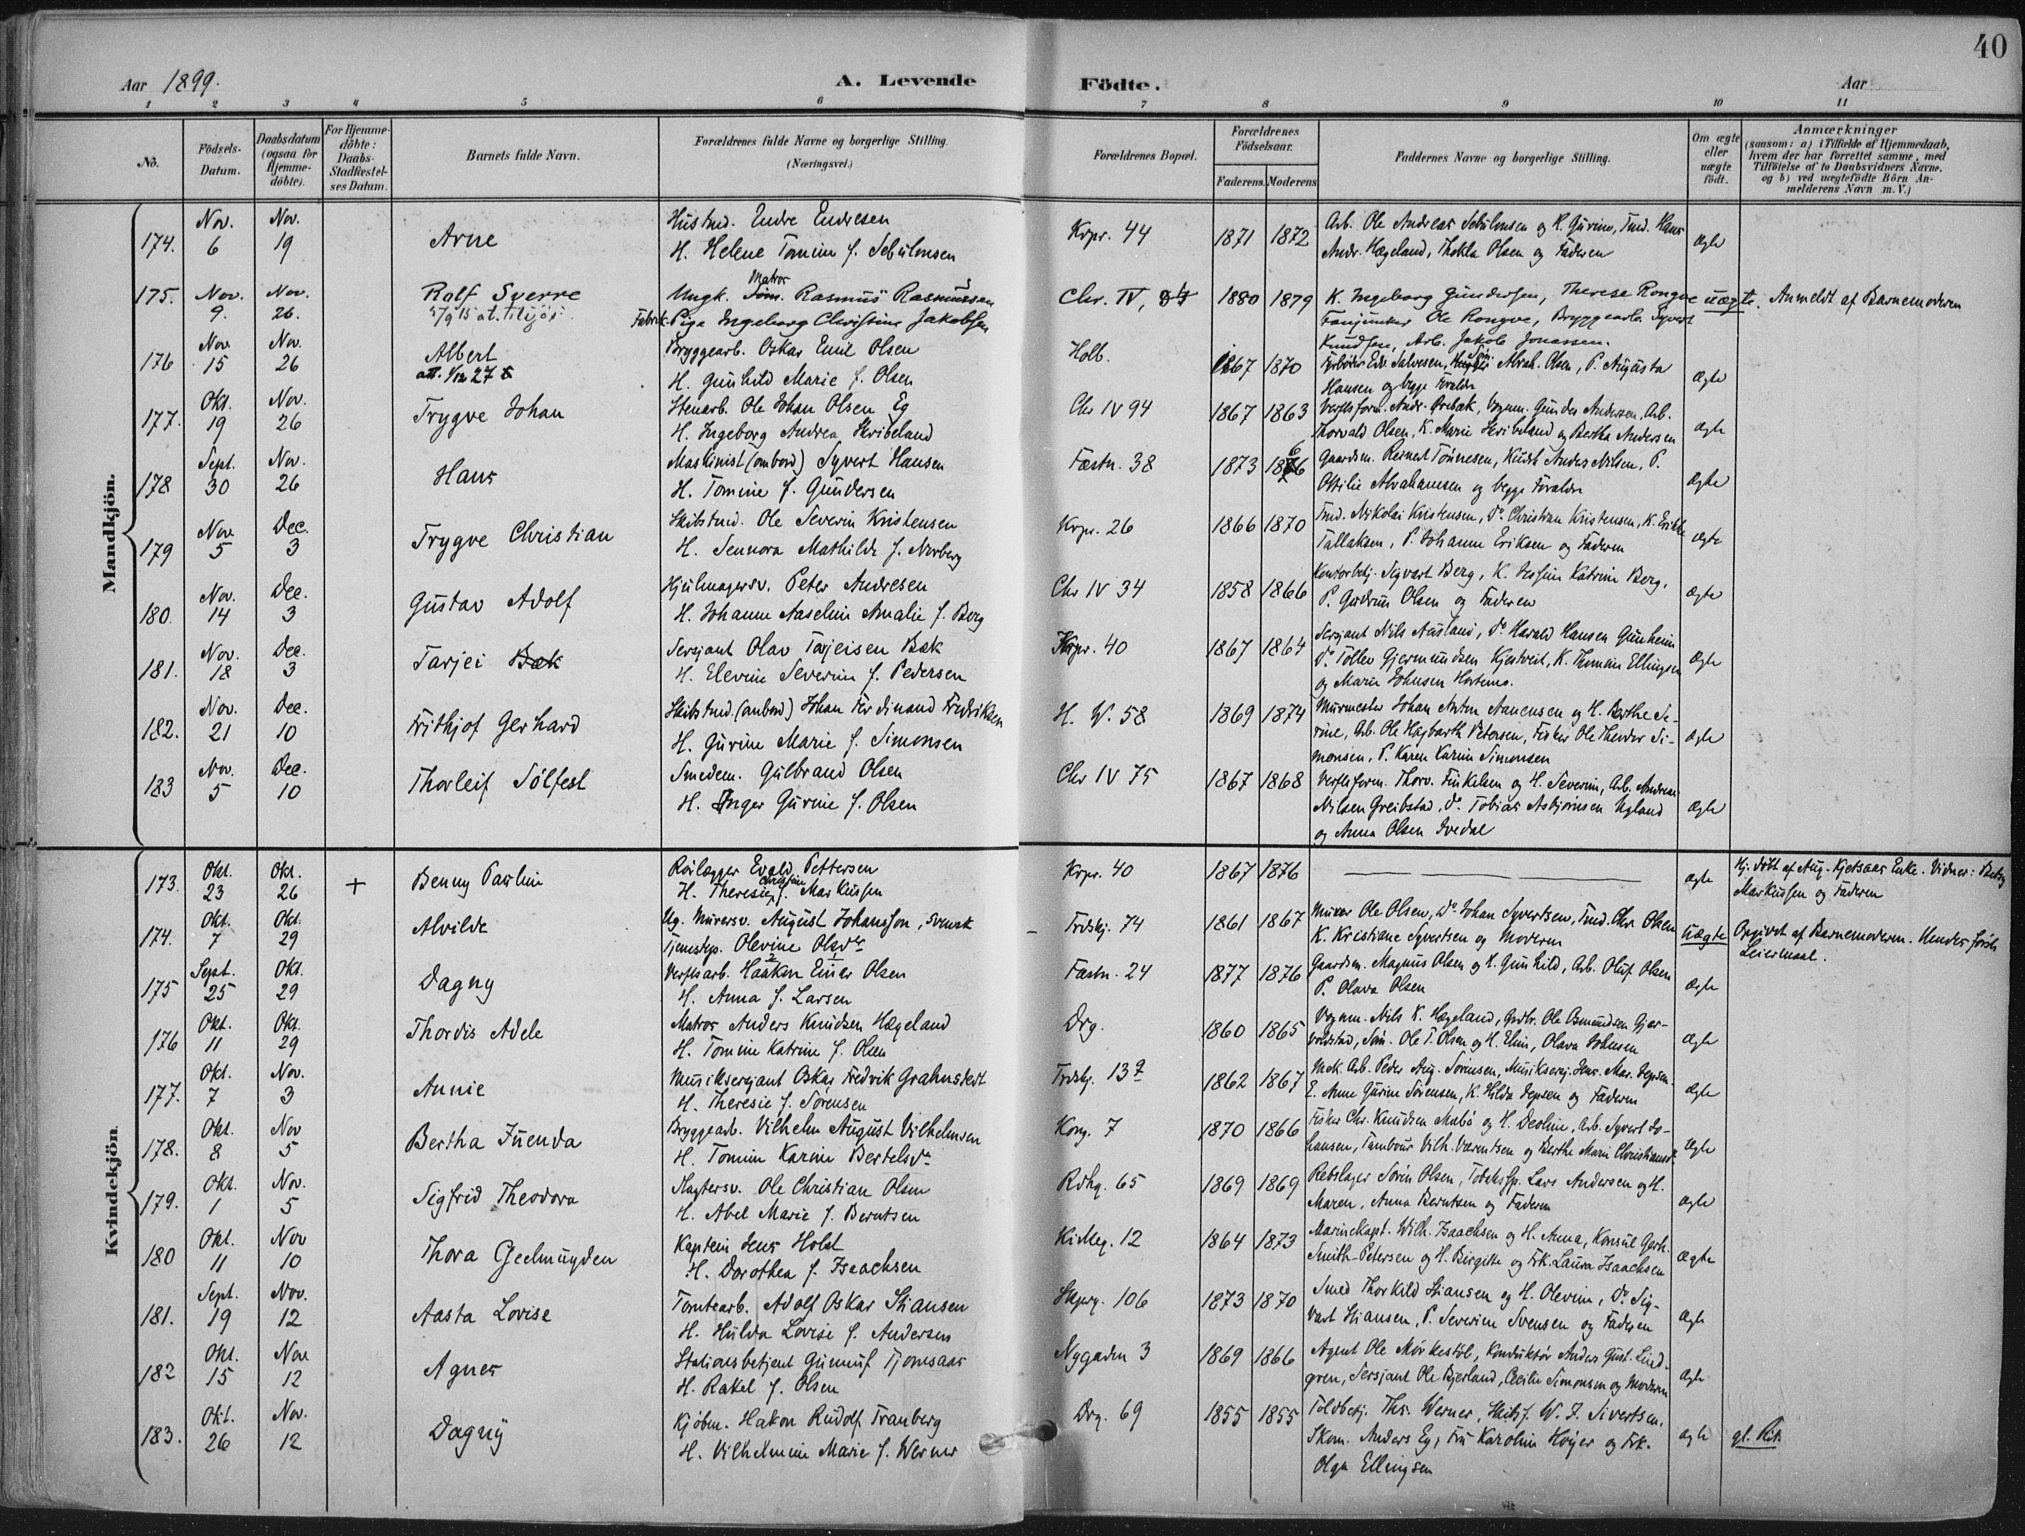 40
Aar 1899.
A. Levende Födte.
Aar
1 2 3 4 5 6 7 8 9 10 11
No.
Födsels-Datum.
Daabsdatum (ogsaa for Hjemme-döbte).
For Hjemme-döbte: Daabs-Stadfæstel-ses Datum.
Barnets fulde Navn.
Forældrenes fulde Navne og borgerlige Stilling. (Næringsvei.)
Forældrenes Bopæl.
Forældrenes Födselsaar.
Faderens. Moderens.
Faddernes Navne og borgerlige Stilling.
Om ægte eller uægte födt.
Anmærkninger (saasom: a) i Tilfælde af Hjemmedaab, hvem der har forrettet samme, med Tilföielse af to Daabsvidners Navne. og b) ved uægtefödte Börn An-melderens Navn m. V.)
Mandkjön.
174. Nov. 6 Nov. 19 Arne Hustmd. Endre Endresen Krpr. 44 1871 1872 Arb. Ole Andreas Sebulonsen og K. Gurine, Tmd. Hans ægte
H. Helene Tomine f. Sebulonsen Andr. Hægeland, Thekla Olsen og Faderen
175. Nov. 9. Nov. 26. Rolf Sverre Ungk. Matros Rasmus Rasmussen Chr. IV, 1880 1879 K. Ingeborg Gundersen, Therese Rongve uægte. Anmeldt af Barnemoderen
Fabrik. Pige Ingeborg Christine Jakobsen Fanjunker Ole Rongve, Bryggearb. Syvert
Knudsen, Arb. Jakob Jonassen.
176 Nov 15 Nov. 26 Albert Bryggearb. Oskar Emil Olsen Holb. 1867 1870 Fyrbøder Edv. Salvesen, Abrah. Olsen, P. Augusta ægte
att. 1/12 27 H. Gunhild Marie f. Olsen Hansen og begge Foraldre
177. Okt. 19 Nov. 26 Trygve Johan Stenarb. Ole Johan Olsen Eg Chr IV 94 1867 1863 Verftsform. Andr. Ørebæk, Vognm. Gunder Andersen, Arb. ægte
H. Ingeborg Andrea Skribeland Thorvald Olsen, K. Marie Skribeland og Bertha Andersen
178 Sept. 30 Nov. 26 Hans Maskinist (ombord) Syvert Hansen Fæstn. 38 1873 1866 Gaardsm. Reinert Tönnesen, Kudsk Anders Nilsen, P. ægte
H. Tomine f. Gundersen Ottilie Abrahamsen og begge Foraldre
179 Nov. 5 Dec. 3 Trygve Christian Skibstmd. Ole Severin Kristensen Krpr. 26 1866 1870 Tmd. Nikolai Kristensen, Do Christian Kristensen, K. Erikke ægte
H. Sennora Mathilde f. Norberg Tallaksen, P. Johanne Eriksen og Faderen
180. Nov. 14 Dec. 3 Gustav Adolf Hjulmagersv. Peter Andresen Chr IV 34 1858 1866 Kontorbetj. Sigvart Berg, K. Katrine Berg, ægte
H. Johanne Aaseline Amalie f. Berg P. Gudrun Olsen og Faderen
181. Nov. 18 Dec. 3 Tarjei Bæk Sersjant Olav Tarjeisen Bæk Krpr. 40 1867 1864 Sersjant Nils Ausland, Do Harald Hansen Gunheim ægte
H. Elevine Severine f. Pedersen Do Tollev Gjermundsen Kjestveit, K. Themine Ellingsen
og Marie Johnsen Hortemo.
182. Nov. 21 Dec. 10 Frithjof Gerhard Skibstmd. (ombord) Johan Ferdinand Fredriksen H. W. 58 1869 1874 Murmester Johan Anton Aanensen og H. Berthe Se- ægte
H. Gurine Marie f. Simonsen rine, Arb. Ole Hagbarth Petersen, Fisker Ole Theodor Si-
monsen, P. Karen Karine Simonsen
183 Nov. 5 Dec. 10 Thorleif Sölfest Smedem. Gulbrand Olsen Chr IV 75 1867 1868 Verftsform. Thorv. Finkelsen og H. Severine, Arb. Andreas ægte
H. Inger Gurine f. Olsen Nilsen Greibstad, Do Tobias Asbjørnsen Ugland
og Anna Olsen Ivedal
Kvindekjön.
173. Okt. 23 Okt. 26 + Benny Pauline Rörlægger Evald Pettersen Krpr. 40 1867 1876 ægte Hj. döbt af Aug. Kjetsaas Enke. Vidner: Betzy
H. Theresie Christine f. Markussen Markussen og Faderen
174. Okt. 7 Okt. 29 Alvilde Ug. Murersv. August Johansson, Svensk Trdskj. 74 1861 1867 Murer Ole Olsen, Do Johan Syvertsen, Tmd. Chr. Olsen uægte Opgivet af Barnemoderen. Hendes förste
Tjenestep. Olevine Olsdr K. Kristiane Syvertsen og Moderen Leiermaal.
175 Sept. 25 Okt. 29 Dagny Verftsarb. Haakon Einer Olsen Fæstn. 24 1877 1876 Gaardsm. Magnus Olsen og H. Gunhild, Arb. Oluf Olsen ægte
H. Anna f. Larsen P. Olava Olsen
176 Okt. 11 Okt. 29 Thordis Adele Matros Anders Knudsen Hægeland Drg. 1860 1865 Vognm. Nils K. Hægeland, Grdbr. Ole Osmundsen Gjer- ægte
H. Tomine Katrine f. Olsen voldstad, Söm. Ole T. Olsen og H. Eline, Olava Johnsen
177. Okt. 7 Nov. 3 Annie Musiksersjant Oskar Fredrik Grahnstedt Trdskj. 13 1862 1867 Mek. Arb. Peder Aug. Sörensen, Musiksersj. Henr. Mar. Jepsen. ægte
H. Theresie f. Sörensen E. Anne Gurine Sörensen, K. Hilda Jepsen og Faderen
178. Okt. 8 Nov 5 Bertha Juenda Bryggearb. Vilhelm August Vilhelmsen Kong. 7 1870 1866 Fisker Chr. Knudsen Mabø og H. Deoline, Arb. Syvert Jo- ægte
H. Tomine Karine Bertelsdr hansen, Tambour Vilh. Værentsen og Berthe Marie Christiansdr
179. Okt. 1 Nov. 5 Sigfrid Theodora Slagtersv. Ole Christian Olsen Rdhg. 65 1869 1869 Rebslager Sörin Olsen, Tobaksfsp. Lars Andersen og H. ægte
H. Abel Marie f. Berntsen Maren, Anna Berntsen og Faderen
180 Okt. 11 Nov 10 Thora Geelmuyden Kaptein Jens Holst Kirkeg. 12 1864 1873 Marinekapt. Wilh. Isaachsen og H. Anna, Konsul Gerh. ægte
H. Dorothea f. Isaachsen Smith-Petersen og H. Birgitte og Frk. Laura Isaachsen
181. Sept. 19 Nov. 12 Aasta Lovise Tomtearb. Adolf Oskar Stiansen Skjerg. 106 1873 1870 Smed Thorkild Stiansen og H. Olevine, Do Sig- ægte
H. Hulda Lovise f. Andersen vart Stiansen, P. Severine Svensen og Faderen
182 Okt. 15 Nov 12 Agnes Stationsbetjent Gunnuf Tjomsaas Nygaden 3 1869 1866 Agent Ole Mörkestöl, Konduktör Anders Gust. Lind- ægte
H. Rakel f. Olsen gren, Sersjant Ole Bjerland, Cecilie Simonsen og Moderen
183. Okt. 26 Nov. 12 Dagny Kjöbm. Hakon Rudolf Tranberg Drg. 69 1855 1855 Toldbetj. Ths. Werner, Skibsf. W. J. Sivertsen, ægte gl. Rit.
H. Vilhelmine Marie f. Werner Skom. Anders Eg, Fru Karoline Höyer og Frk.
Olga Ellingsen